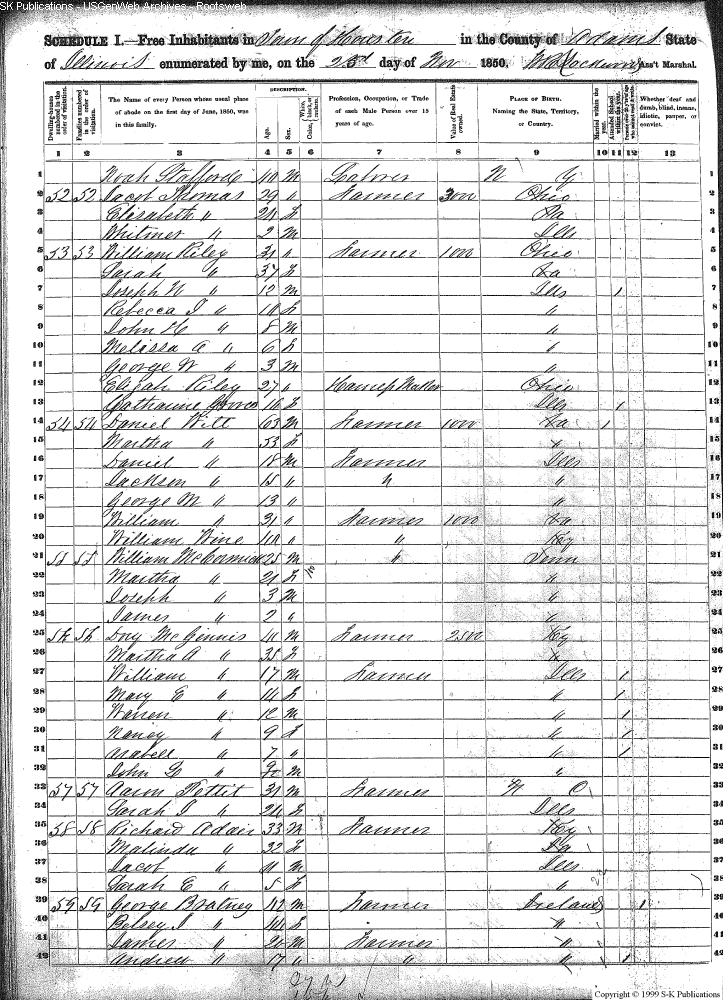 S-K Publications - USGenWeb Archives - Rootsweb
SCHEDULE I.—Free Inhabitants in Town of Houston in the County of Adams State
of Illinois enumerated by me, on the 23d day of Nov 1850. Ass't Marshal.
Dwelling-houses numbered in the order of visitation.
Families numbered in the order of visitation.
The Name of every Person whose usual place of abode on the first day of June, 1850, was in this family.
DESCRIPTION.
Age.
Sex.
Color,
Profession, Occupation, or Trade of each Male Person over 15 years of age.
Value of Real Estate owned.
PLACE OF BIRTH.
Naming the State, Territory, or Country.
Married within the year.
Attended School within the year.
Whether deaf and dumb, blind, insane, idiotic, pauper, or convict.
1 2 3 4 5 6 7 8 9 10 11 12 13
1 Noah Stafford 40 M Laborer N 1
2 52 52 Jacob Thomas 29 " Farmer 3000 Ohio 2
3 Elisabeth " 24 F Pa 3
4 Whitmer " 2 M Ills 4
5 53 53 William Riley 31 " Farmer 1000 Ohio 5
6 Sarah " 37 F Va 6
7 Joseph W " 12 M Ills 1 7
8 Rebecca J " 10 F " 8
9 John H " 8 M " 9
10 Melissa A " 6 F " 10
11 George W " 3 M " 11
12 Elijah Riley 27 " Harness Maker Ohio 12
13 Catharine 16 F Ills 1 13
14 54 54 Daniel Witt 63 M Farmer 1000 Va 1 14
15 Martha " 53 F " 15
16 Daniel " 18 M Farmer Ills 16
17 Jackson " 15 " " " 17
18 George M " 13 " " 18
19 William " 31 " Farmer 1000 Va 19
20 William Wine 40 " " Ky 20
21 55 55 William McCormick 25 M " Tenn 21
22 Martha " 21 F " 22
23 Joseph " 3 M " 23
24 James " 2 " " 24
25 56 56 McGinnis 40 M Farmer 2500 Ky 25
26 Martha A " 35 F 26
27 William " 17 M Farmer Ills 1 27
28 Mary E " 14 F " 1 28
29 Warren " 12 M " 1 29
30 Nancy " 9 F " 1 30
31 Arabell " 7 " " 1 31
32 John " M " 32
33 57 57 Aaron Pettit 31 M Farmer N C 33
34 Sarah J " 24 F Ills 34
35 58 58 Richard Adair 33 M Farmer Ky 35
36 Malinda " 32 F 36
37 Jacob " 11 M Ills 37
38 Sarah E " 5 F " 38
39 59 59 George Bratney 42 M Farmer Ireland 1 39
40 Betsey J " 44 F " 40
41 James " 20 M Farmer " 41
42 Andrew " 17 " " " 1 42
Copyright © 1999 S-K Publications